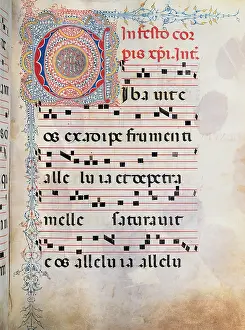 In festo cor
pis xp̄i. Int̄.
Cibavit e
os ex adipe frumenti
alleluia et de petra
melle saturavit
eos alleluia allelu